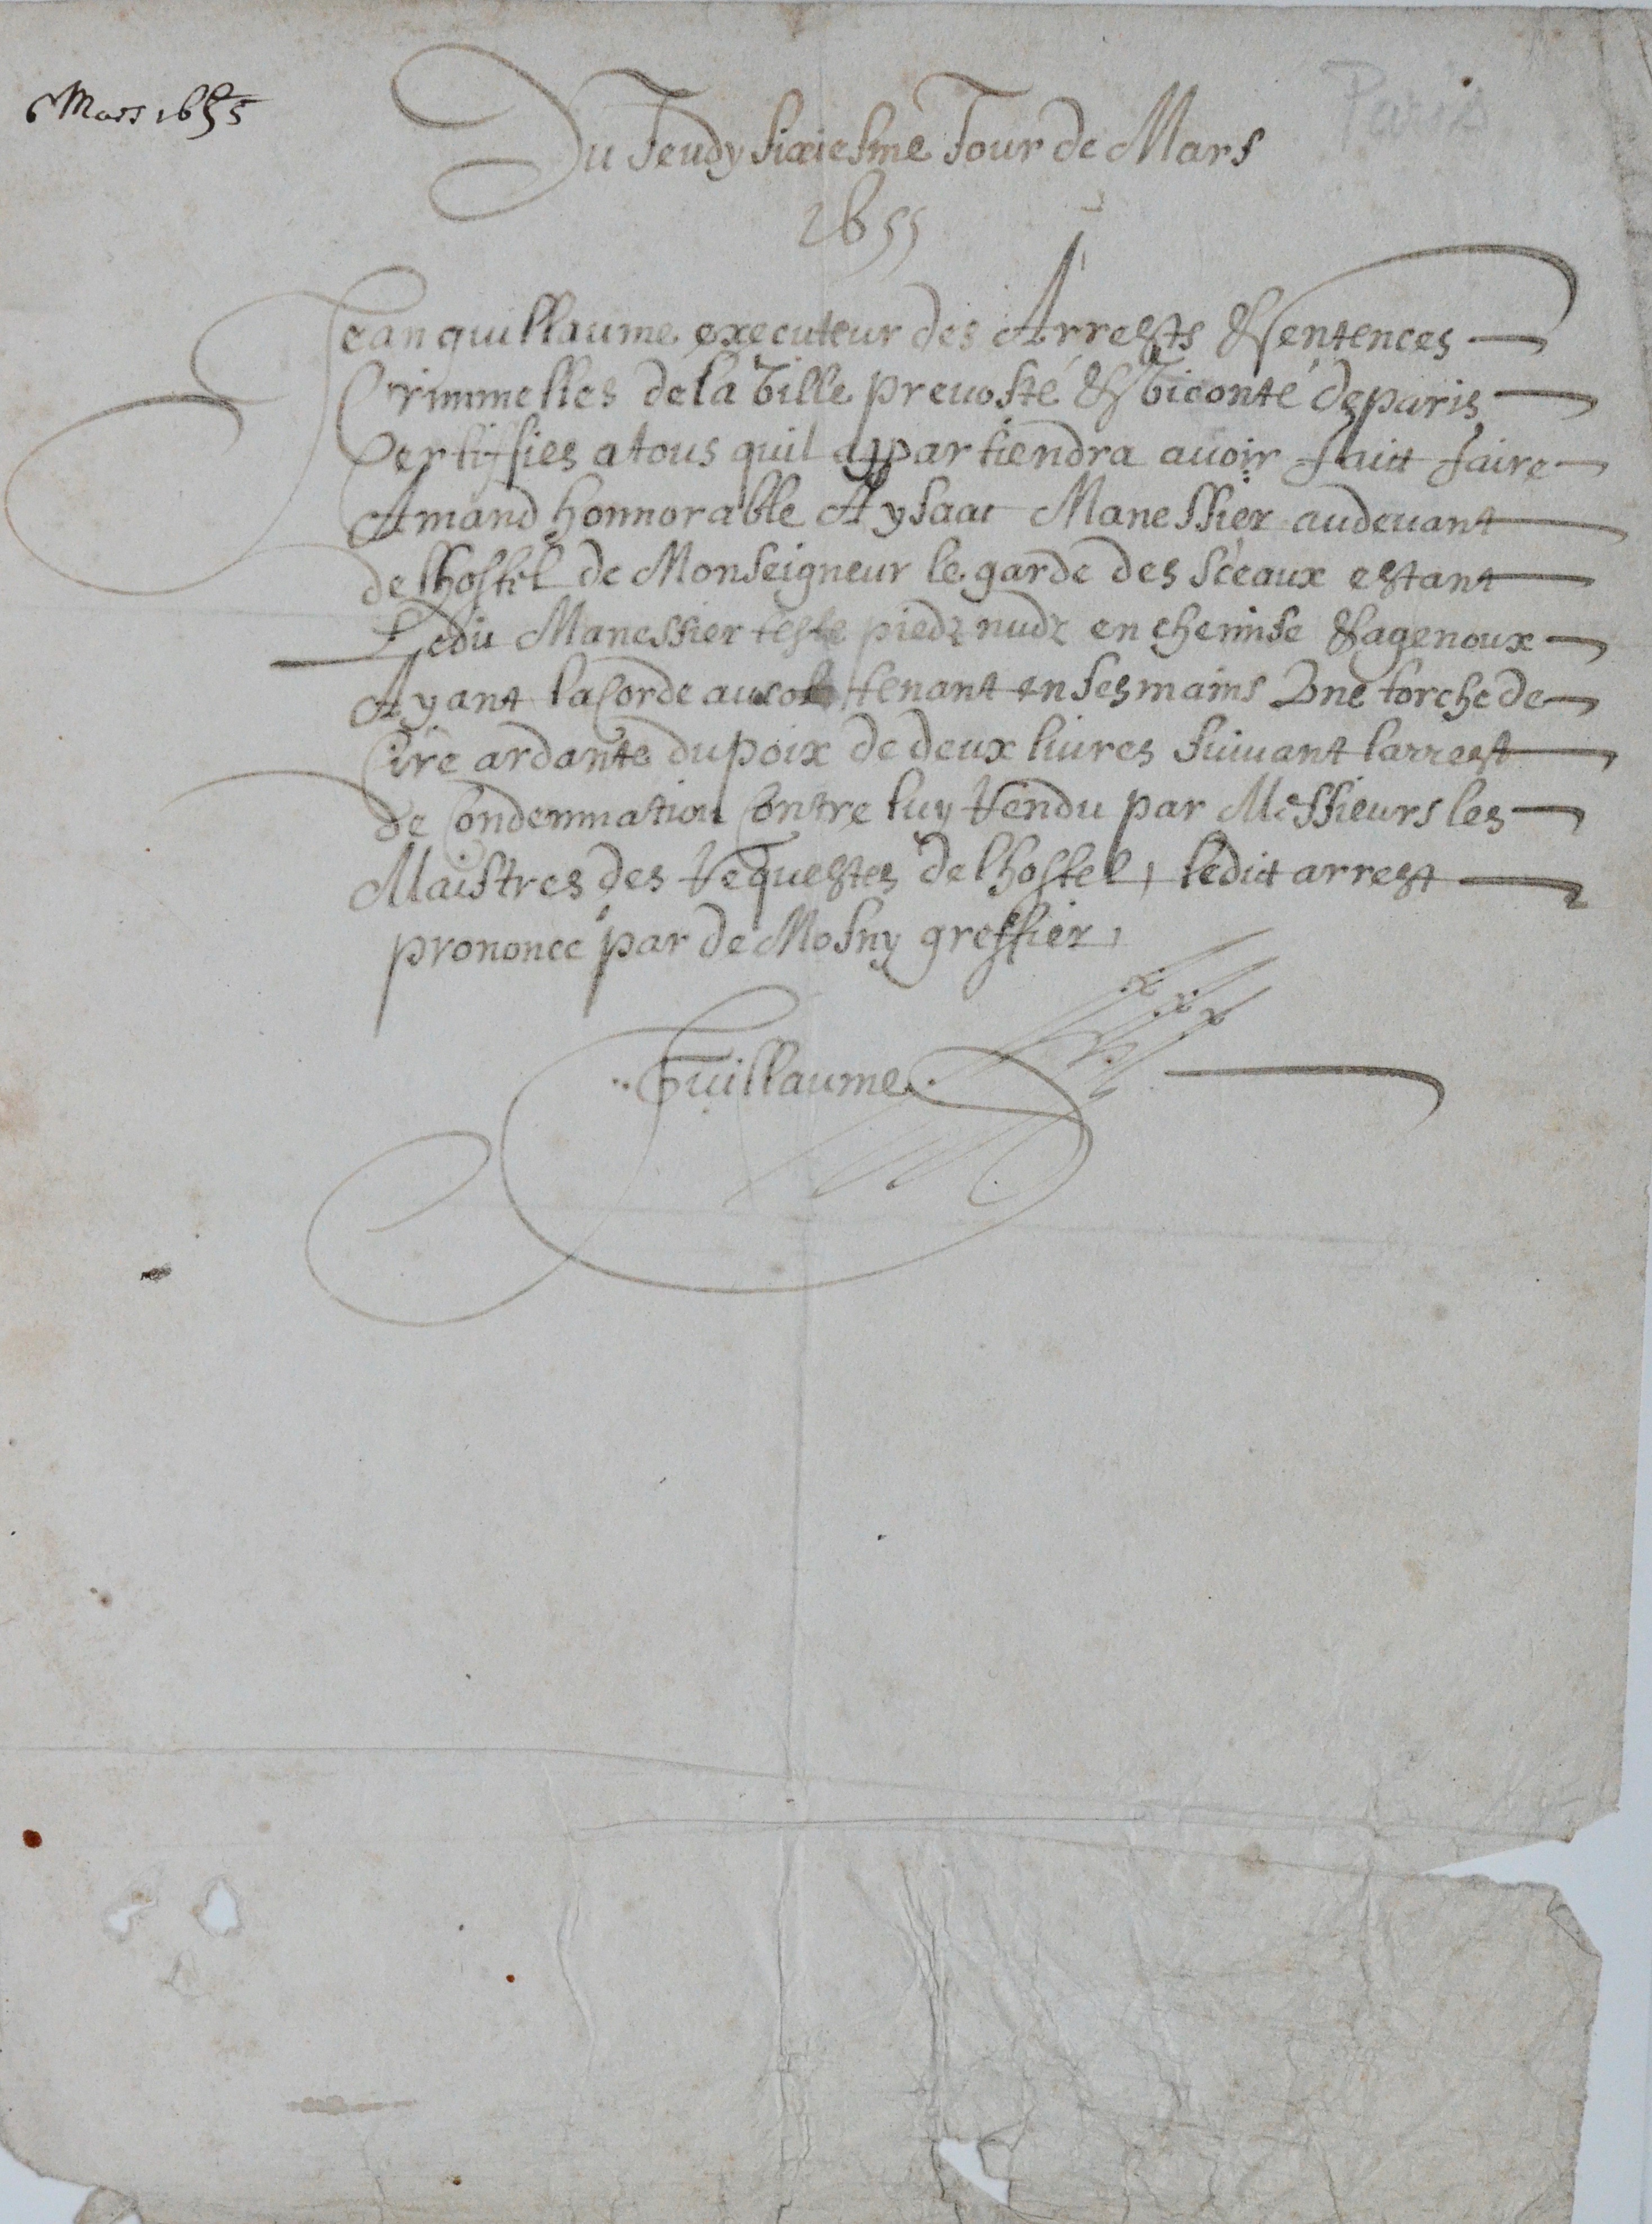 6 Mars 1655
Paris
Du Jeudy sixiesme Jour de Mars
1655
Jean guillaume executeur des Arrests & sentences
Criminelles de la Ville prevosté & Viconté de paris
Certiffies a tous quil appartiendra avoir faict faire
Amand honnorable A ysaac Manessier audevant
de lhostel de Monseigneur le garde des sceaux estant
Ledit Manessier teste piedz nudz en chemise & a genoux
Ayant la Corde au col tenant en ses mains Une torche de
Cire ardante du poix de deux livres suivant larrest
de Condemnation Contre luy Rendu par Messieurs les
Maistres des Requestes de lhostel, ledict arrest
prononcé par de Mosny greffier,
Guillaume